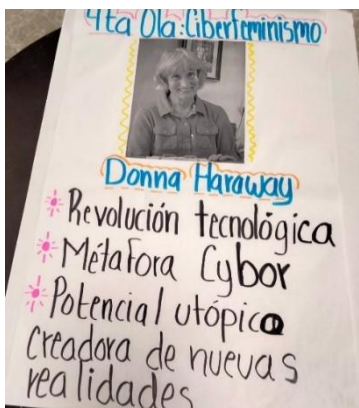 4ta Ola: Ciberfeminismo
Donna Haraway
Revolución tecnológica
Métafora Cybor
Potencial utópico
creadora de nuevas
realidades